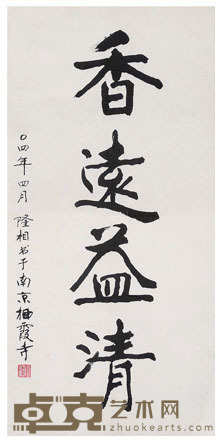 香遠益清
〇四年四月 隆相书于南京栖霞寺
卓克艺术网
zhuokearts.com